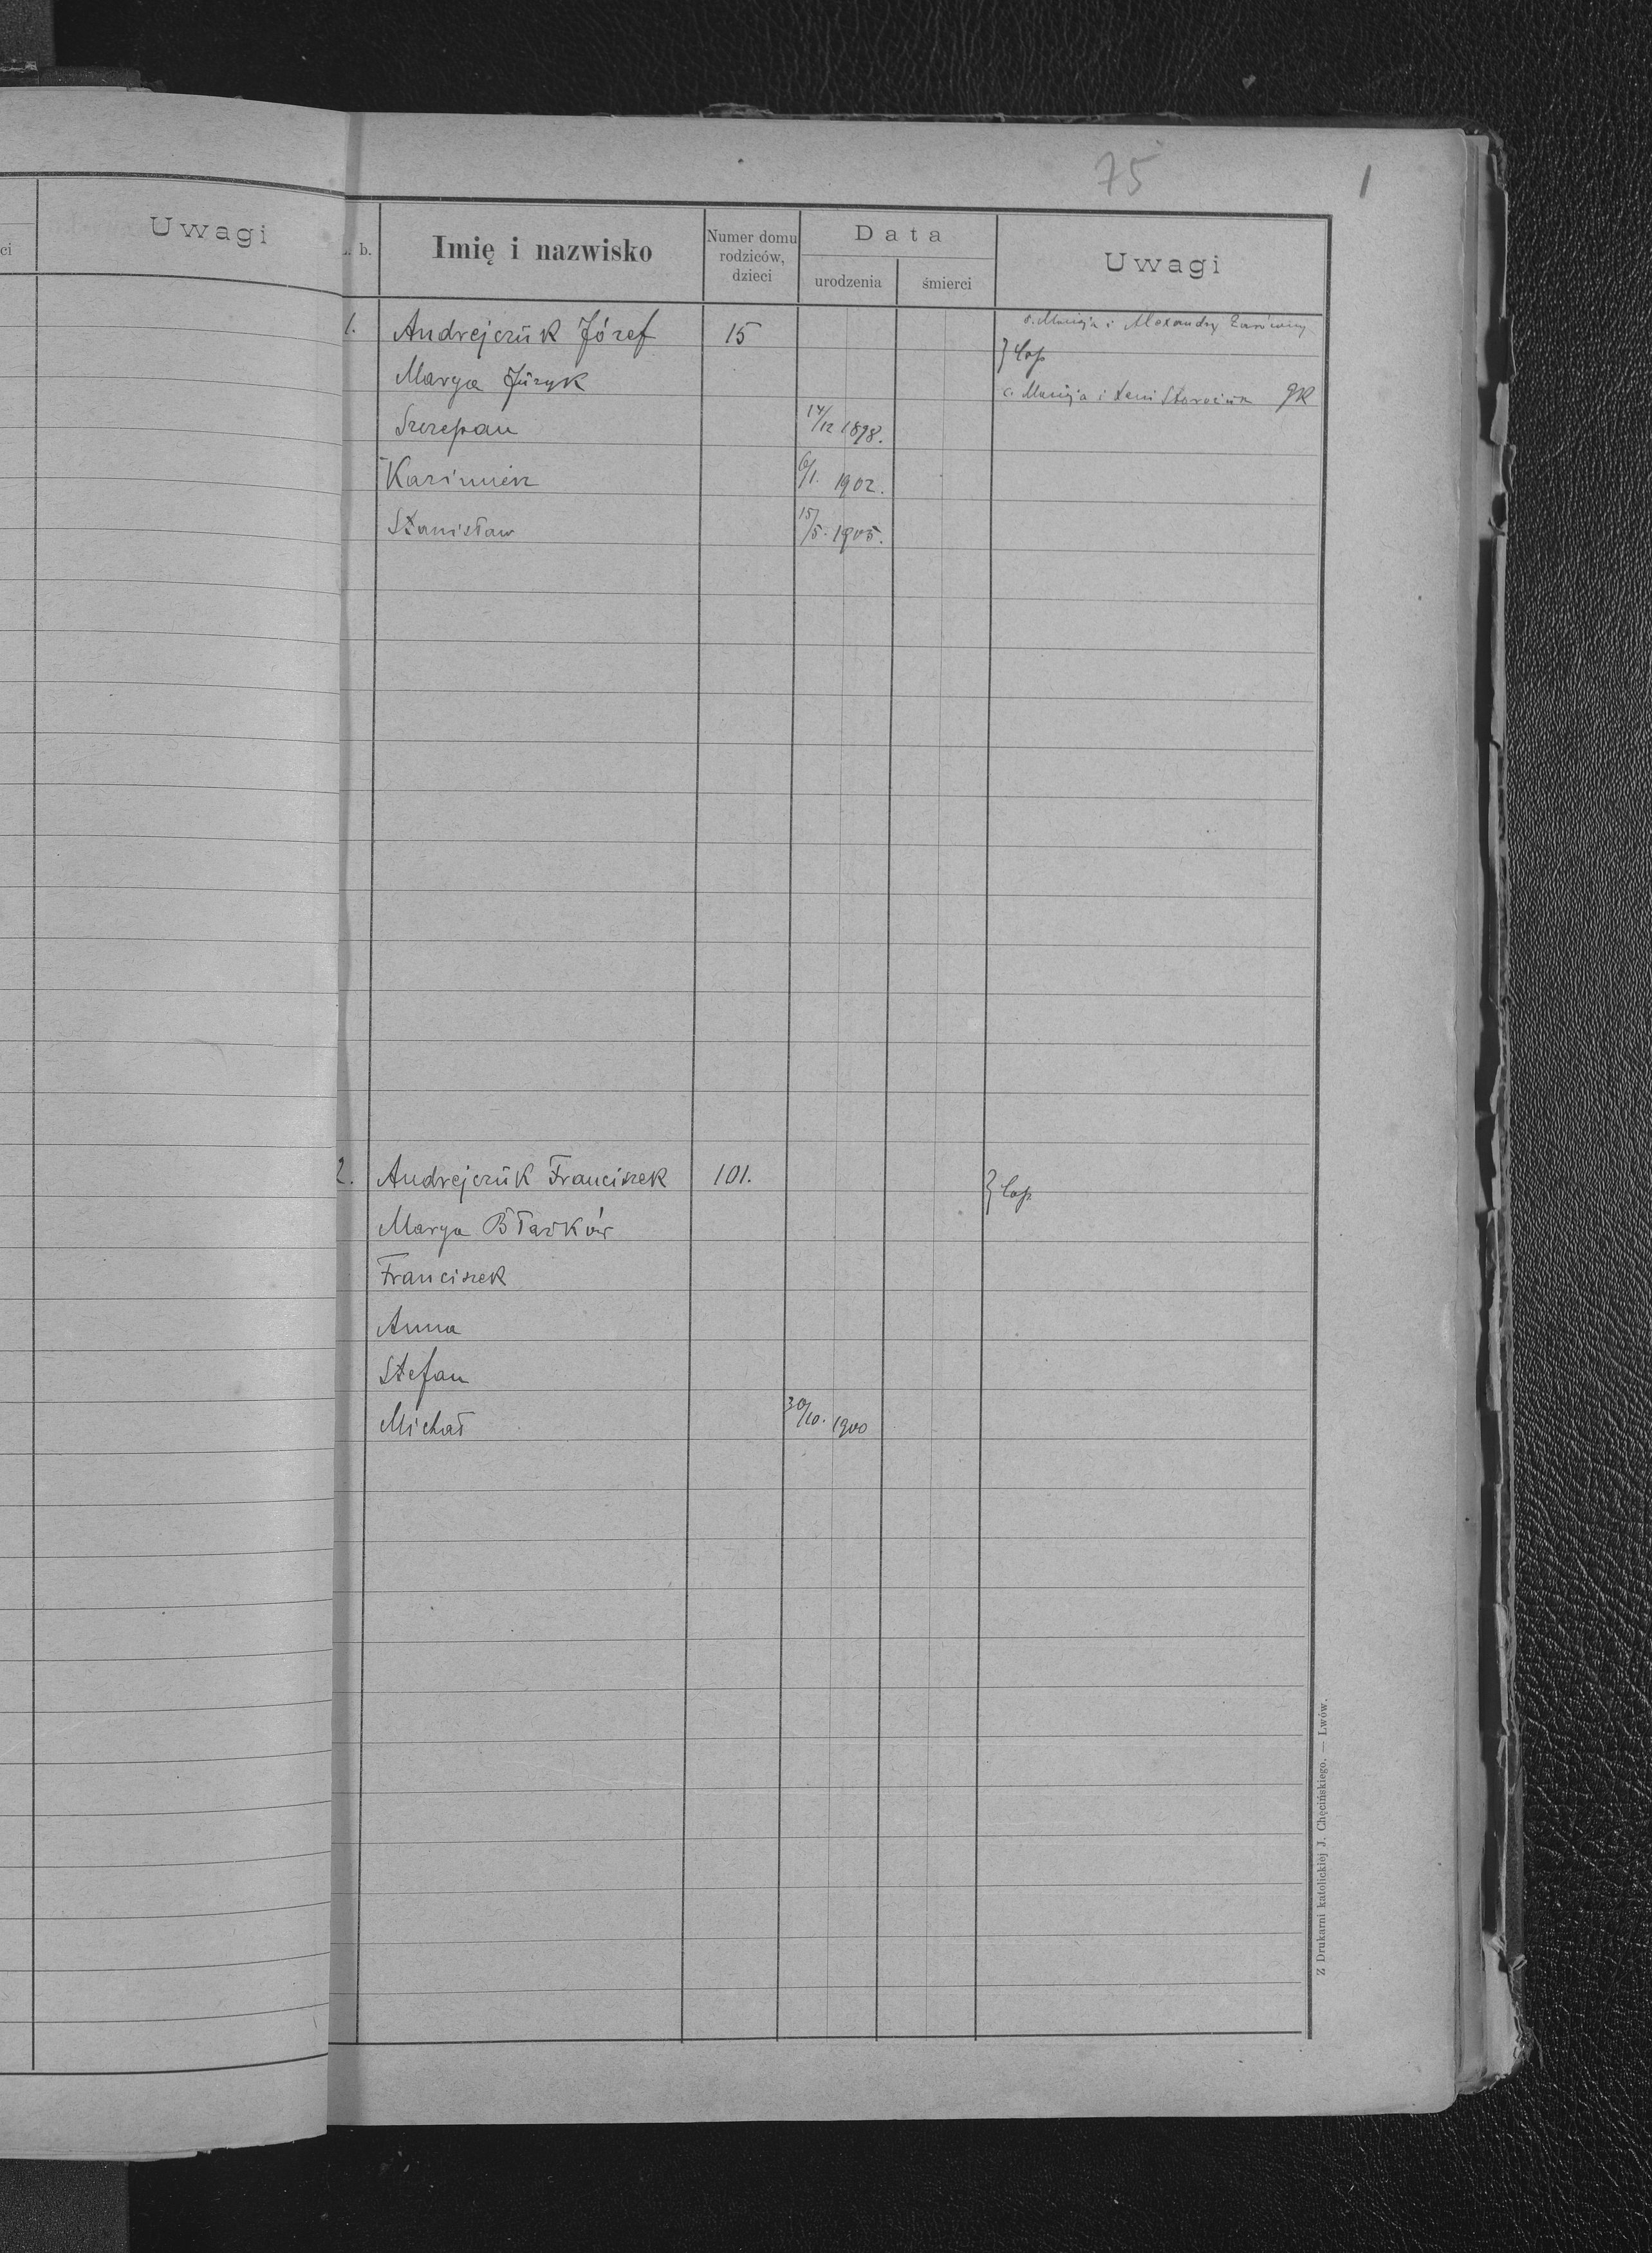 75 1
ci Uwagi
b. Imię i nazwisko Numer domu rodziców, dzieci Data urodzenia śmierci Uwagi
1. Andrejczuk Józef 15 s. Macieja i Alexandry
Marya Juzyk } Cop c. Macieja i GK
Szczepan 14/12 1898.
Kazimierz 6/1. 1902.
Stanisław 15/5. 1905.
2. Andrejczuk Franciszek 101. } Cop
Marya Błaszków
Franciszek
Anna
Stefan
Michał 30/10. 1900
Z Drukarni katolickiéj J. Chęcińskiego. — Lwów.